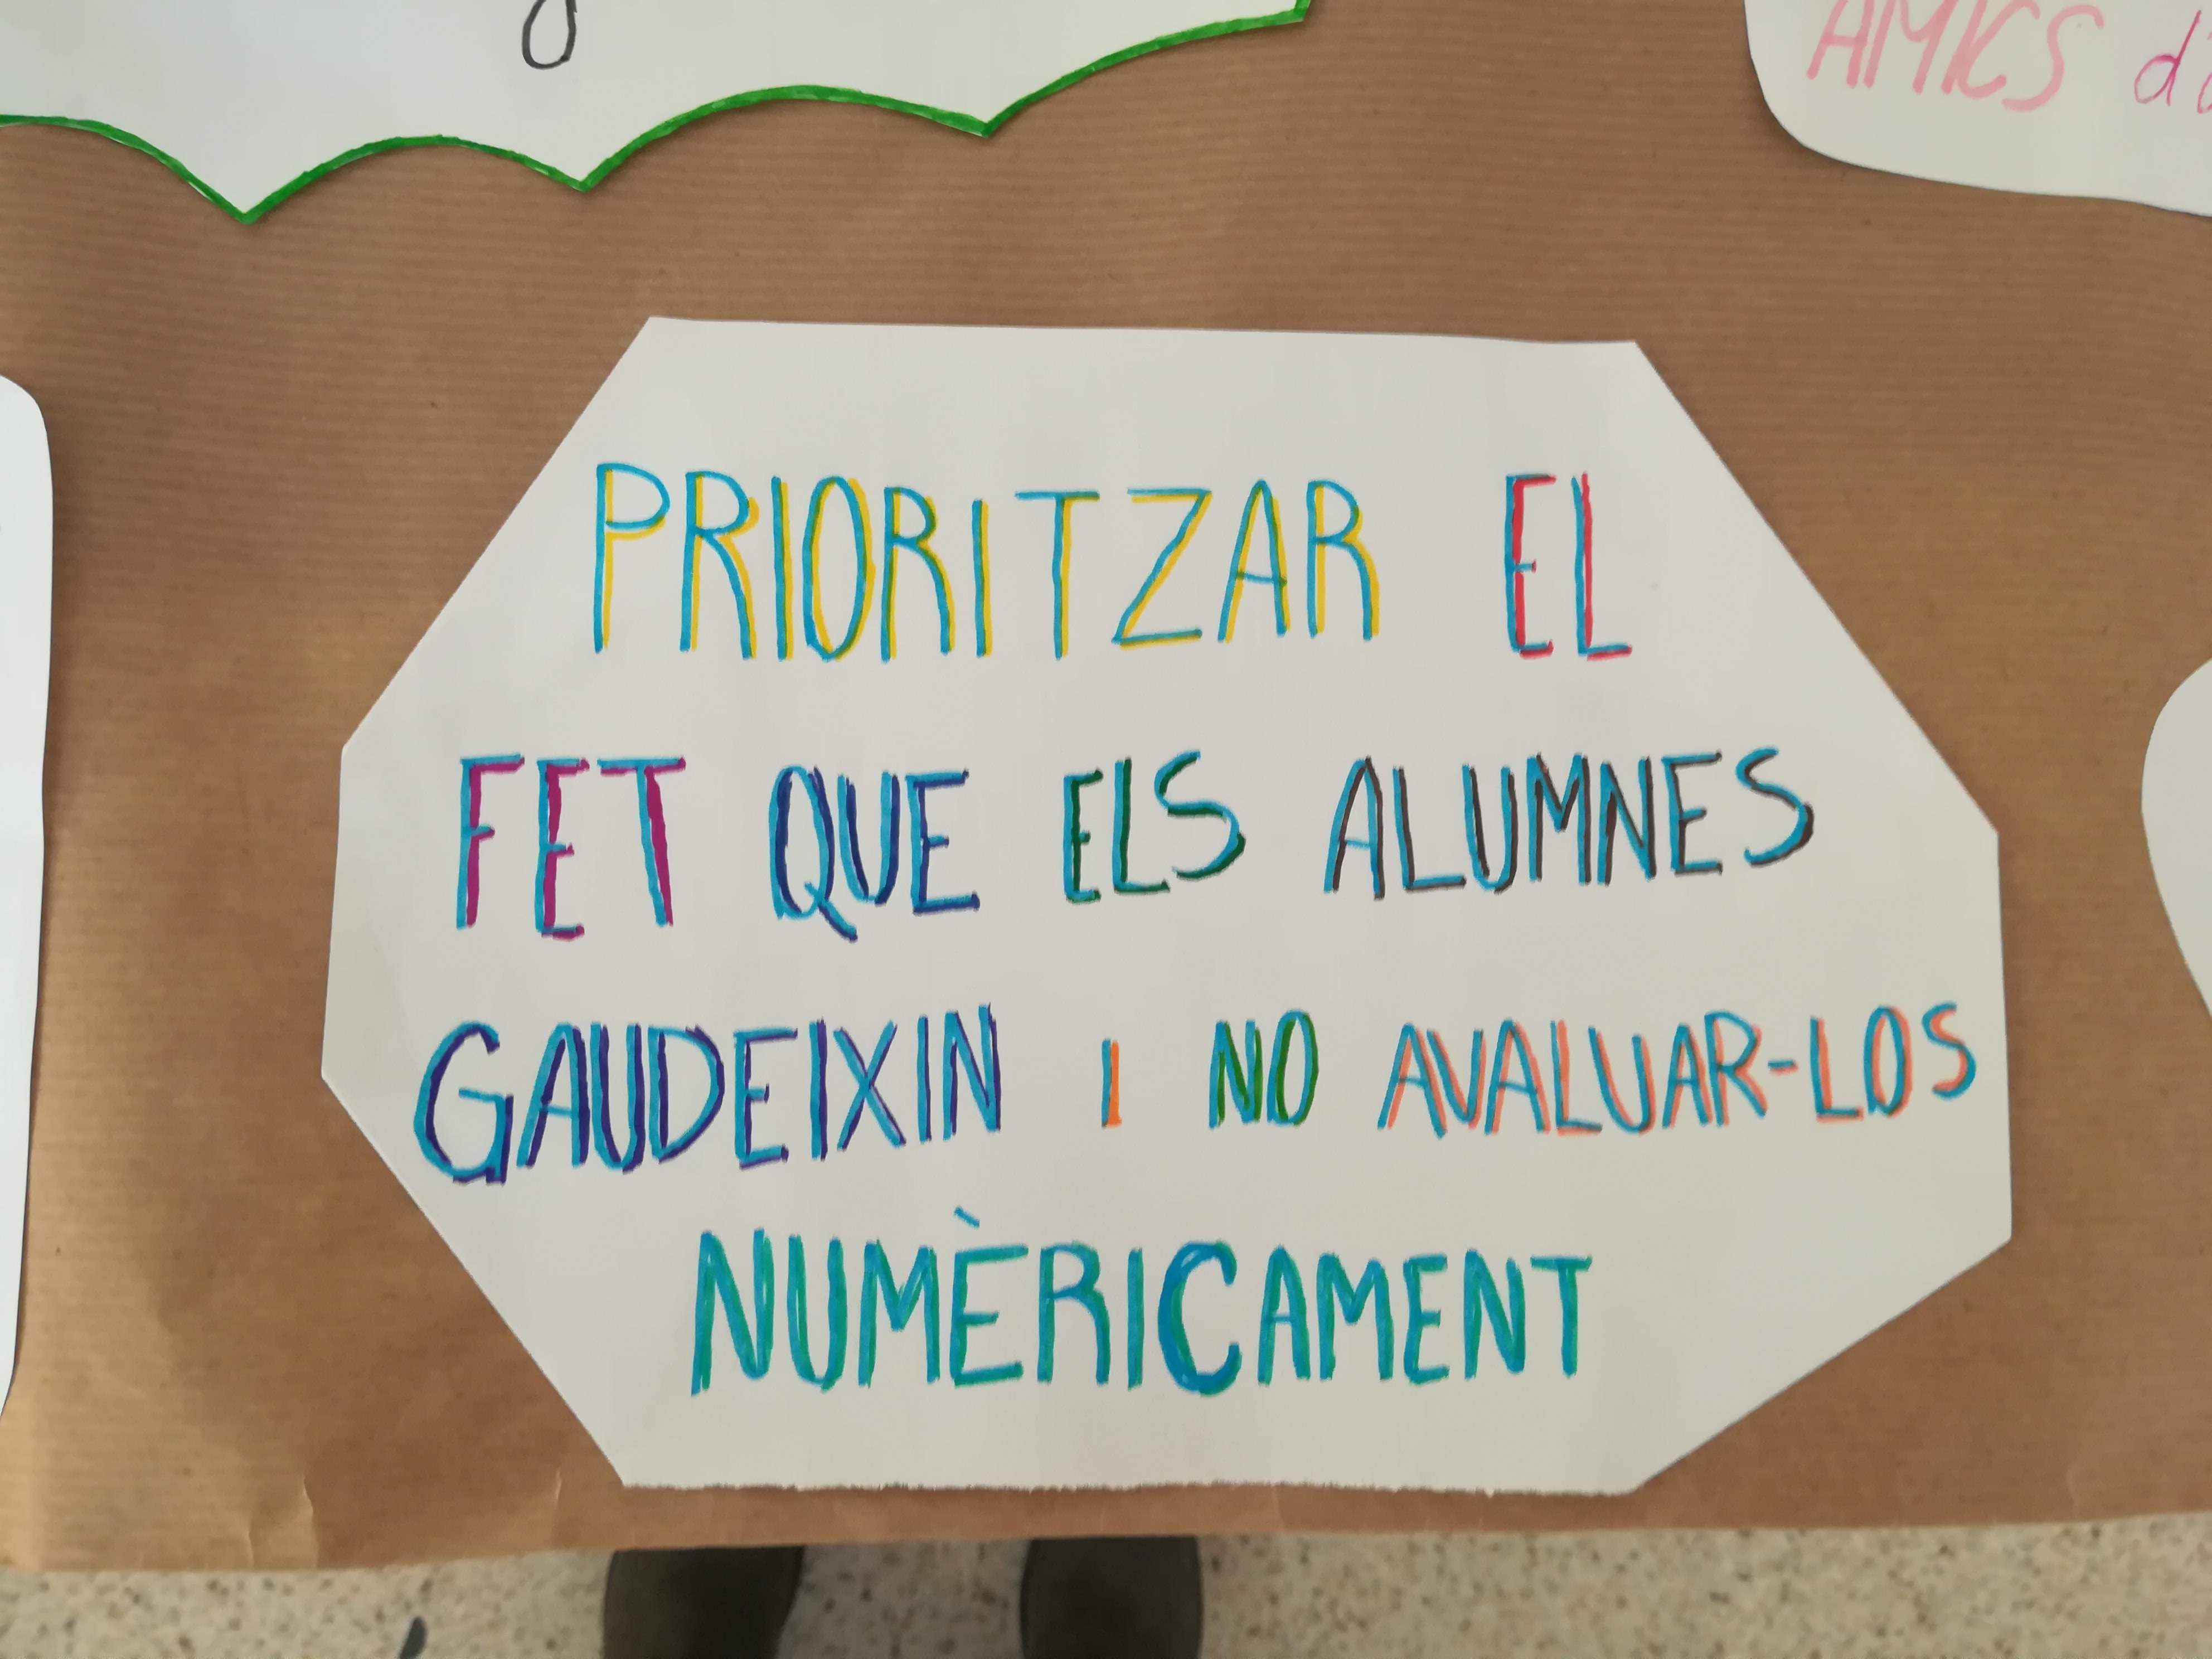 AMICS
PRIORITZAR EL
FET QUE ELS ALUMNES
GAUDEIXIN I NO AVALUAR-LOS
NUMÈRICAMENT